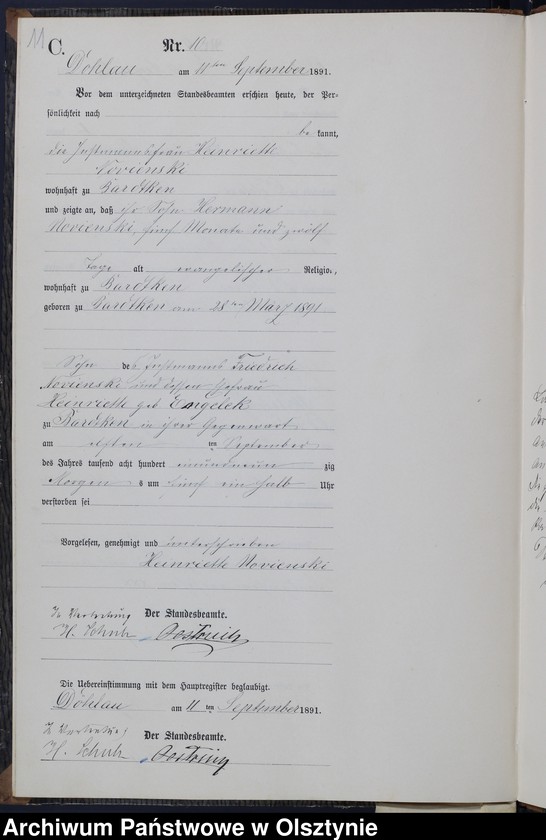 11
C.
Nr. 10
Döhlau am 11ten September 1891.
Vor dem unterzeichneten Standesbeamten erschien heute, der Per-
sönlichkeit nach
be kannt,
die Instmannsfrau Heinriette
Novienski
wohnhaft zu Bardtken
und zeigte an, daß ihr Sohn Hermann
Novienski, fünf Monate und zwölf
Tage alt evangelischer Religion,
wohnhaft zu Bardtken
geboren zu Bardtken am 28ten März 1891
Sohn des Instmanns Friedrich
Novienski und dessen Ehefrau
Heinriette geb Engelek
zu Bardtken in ihrer Gegenwart
am elften ten September
des Jahres tausend acht hundert einundneun zig
Morgen s um fünf ein halb Uhr
verstorben sei
Vorgelesen, genehmigt und unterschrieben
Heinriette Novienski
Der Standesbeamte.
In Vertretung
H. Schulz
Die Uebereinstimmung mit dem Hauptregister beglaubigt.
Döhlau am 11 ten September 1891.
Der Standesbeamte.
In Vertretung
H. Schulz
Archiwum Państwowe w Olsztynie